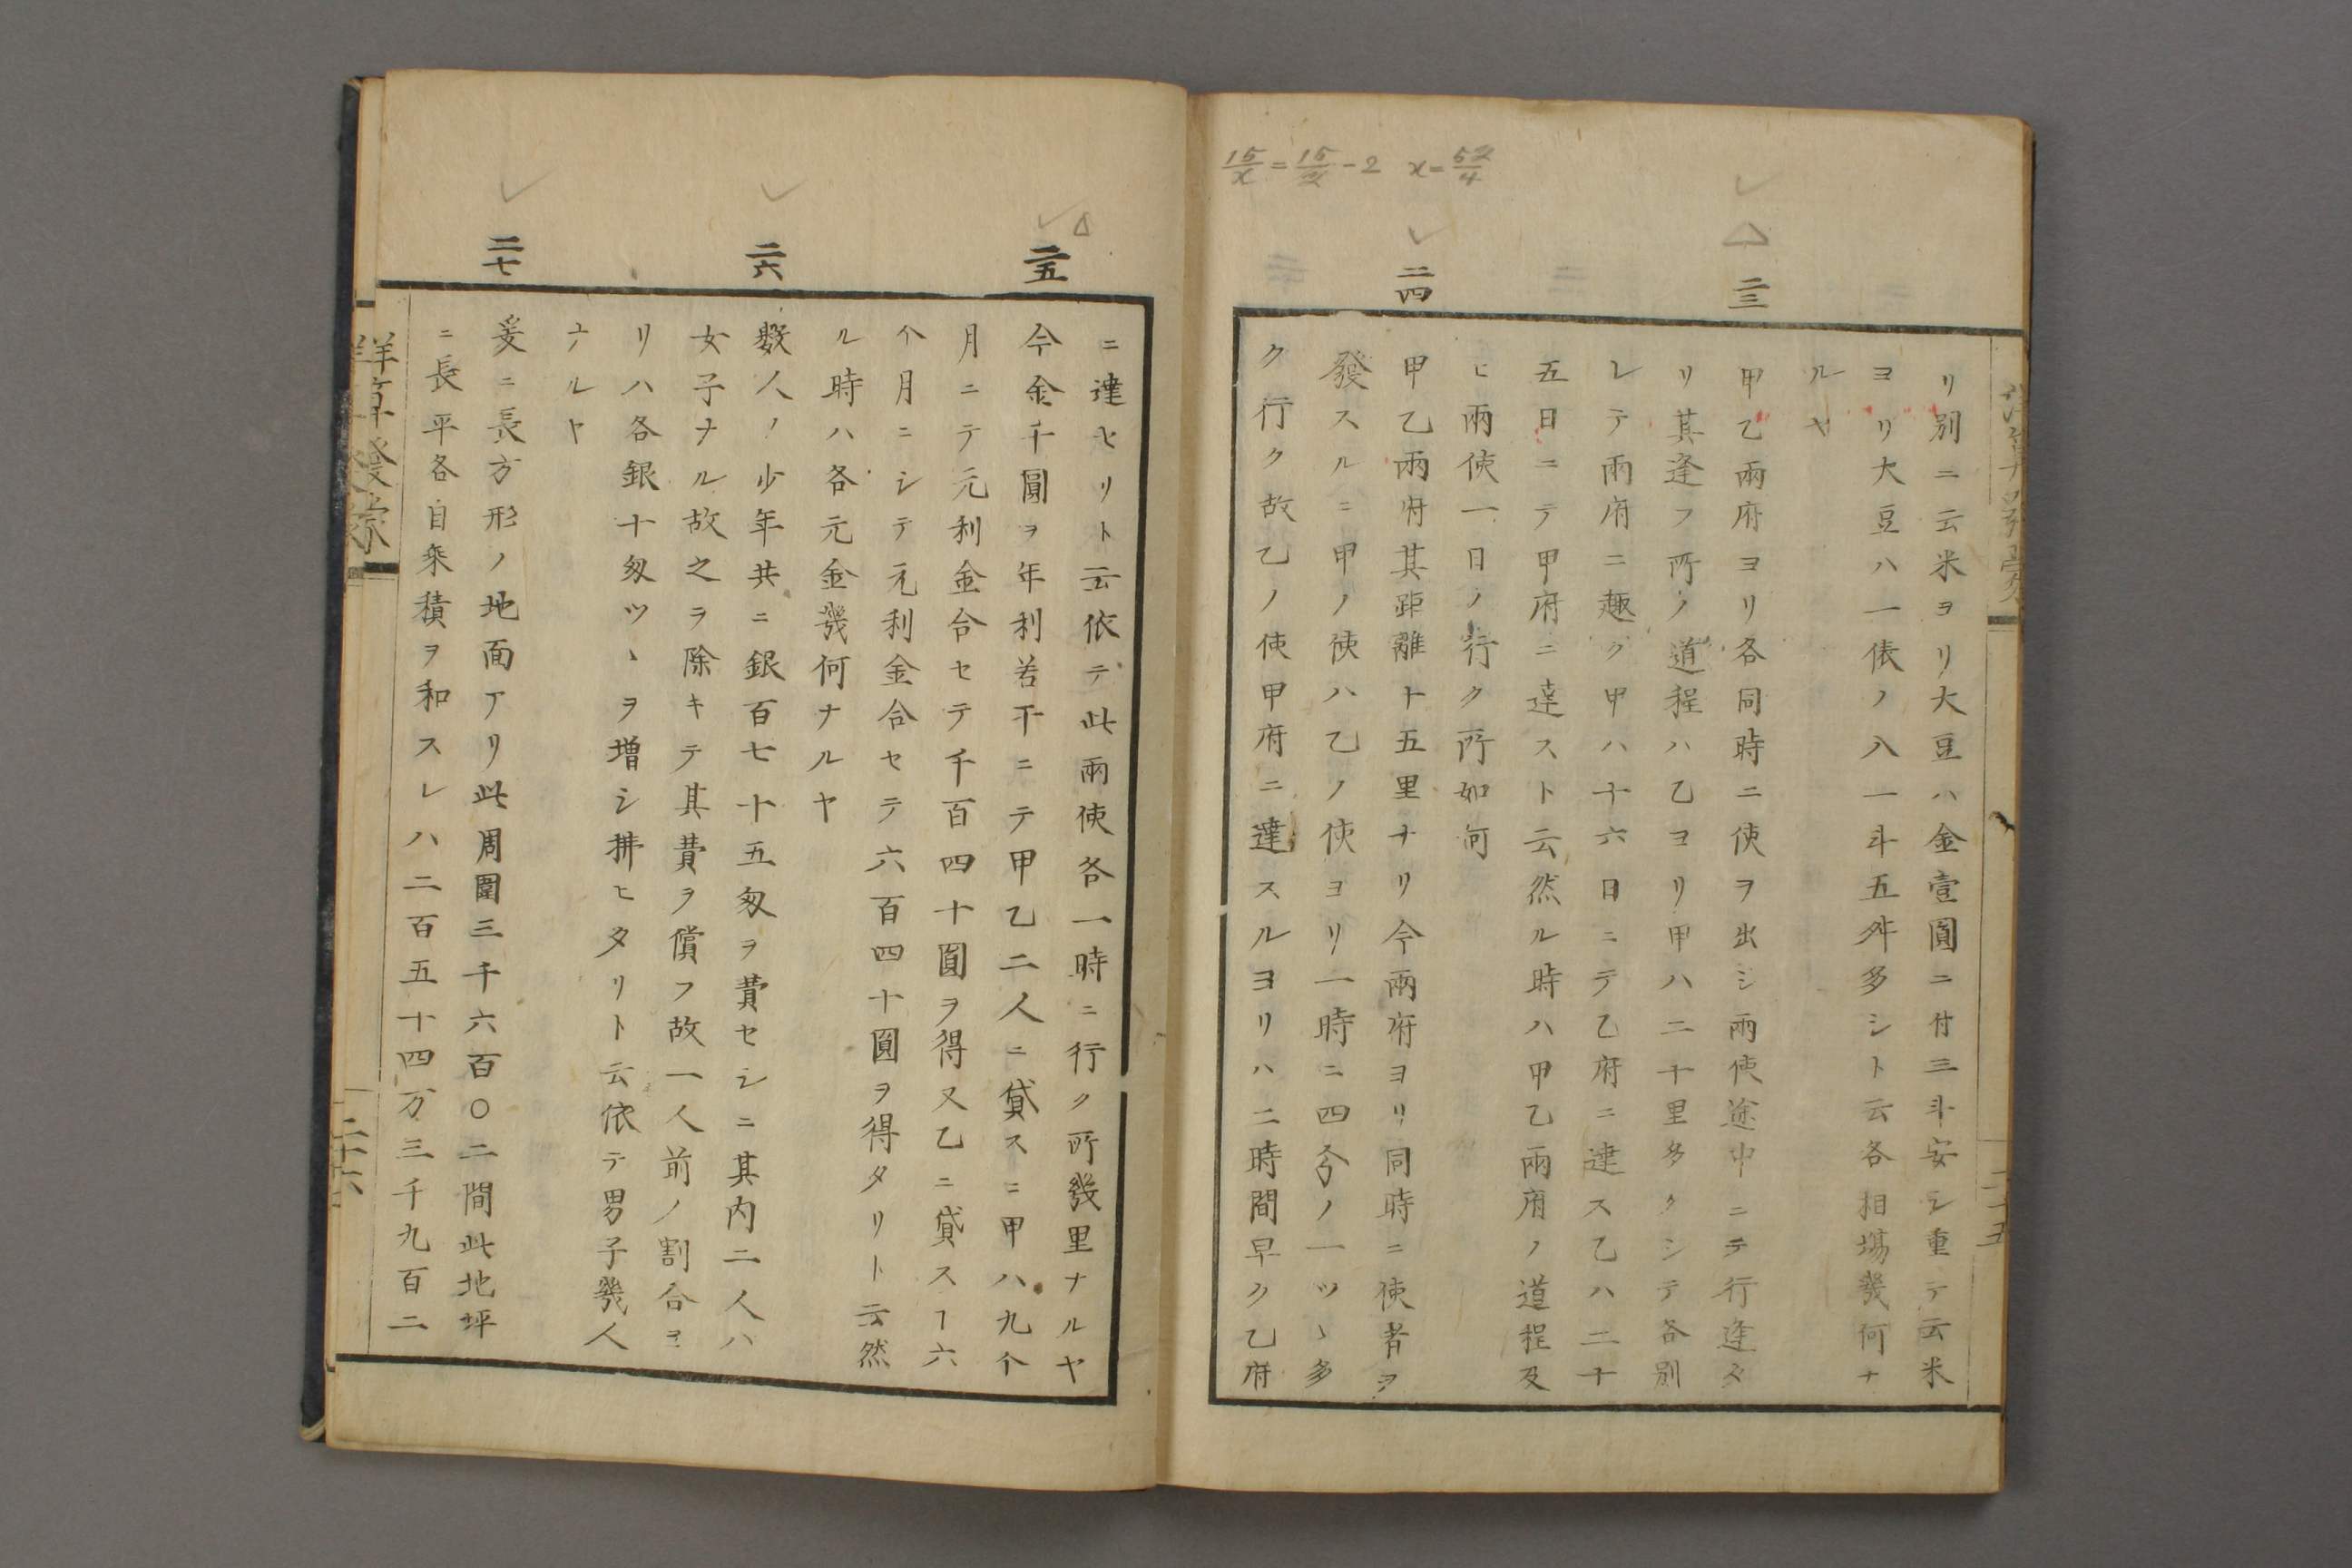 リ別ニ云米ヨリ大豆ハ金壹圓ニ付三斗安シ重テ云米
ヨリ大豆ハ一俵ノ入一斗五舛多シト云各相場幾何ナ
ルヤ
二三
甲乙兩府ヨリ各同時ニ使ヲ出シ兩使途中ニテ行逢タ
リ其逢フ所ノ道程ハ乙ヨリ甲ハ二十里多クシテ各別
レテ兩府ニ趣ク甲ハ十六日ニテ乙府ニ達ス乙ハ二十
五日ニテ甲府ニ達スト云然ル時ハ甲乙兩府ノ道程及
ヒ兩使一日ノ行ク所如何
二四
甲乙兩府其距離十五里ナリ今兩府ヨリ同時ニ使者ヲ
發スルニ甲ノ使ハ乙ノ使ヨリ一時ニ四分ノ一ツヽ多
ク行ク故乙ノ使甲府ニ達スルヨリハ二時間早ク乙府
15/x = 15/x - 2 x = 52/4
ニ達セリト云依テ此兩使各一時ニ行ク所幾里ナルヤ
二五
今金千圓ヲ年利若干ニテ甲乙二人ニ貸スニ甲ハ九个
月ニテ元利金合セテ千百四十圓ヲ得又乙ニ貸スヿ六
个月ニシテ元利金合セテ六百四十圓ヲ得タリト云然
ル時ハ各元金幾何ナルヤ
二六
数人ノ少年共ニ銀百七十五匁ヲ費セシニ其内二人ハ
女子ナル故之ヲ除キテ其費ヲ償フ故一人前ノ割合ヨ
リハ各銀十匁ツヽヲ増シ拂ヒタリト云依テ男子幾人
ナルヤ
二七
爰ニ長方形ノ地面アリ此周圍三千六百〇二間此地坪
ニ長平各自乘積ヲ和スレハ二百五十四万三千九百二
二十六
二十五